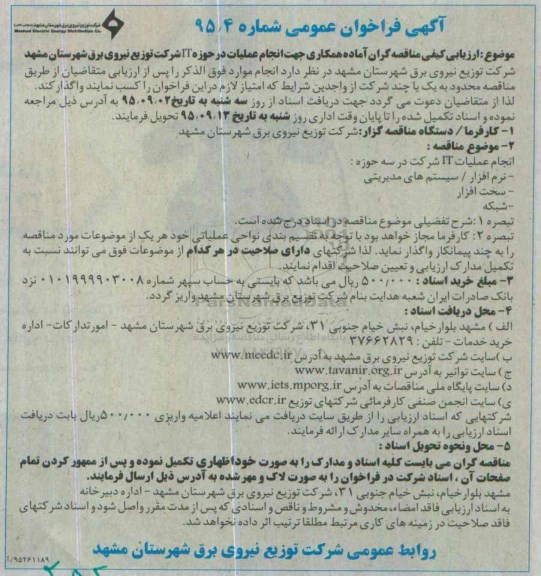 آگهی فراخوان عمومی شماره ۹۵،۴
شرکت توزیع نیروی برق شهرستان مشهد
Mashhad Electric Energy Distribution Co.
موضوع: ارزیابی کیفی مناقصه گران آماده همکاری جهت انجام عملیات در حوزه IT شرکت توزیع نیروی برق شهرستان مشهد
شرکت توزیع نیروی برق شهرستان مشهد در نظر دارد انجام موارد فوق الذکر را پس از ارزیابی متقاضیان از طریق
مناقصه محدود به یک یا چند شرکت از واجدین شرایط که امتیاز لازم در این فراخوان را کسب نمایند واگذار کند.
لذا از متقاضیان دعوت می گردد جهت دریافت اسناد از روز سه شنبه به تاریخ ۹۵،۰۹،۰۲ به آدرس ذیل مراجعه
نموده و اسناد تکمیل شده را تا پایان وقت اداری روز شنبه به تاریخ ۹۵،۰۹،۱۳ تحویل فرمایند.
۱- کارفرما / دستگاه مناقصه گزار: شرکت توزیع نیروی برق شهرستان مشهد
۲- موضوع مناقصه :
انجام عملیات IT شرکت در سه حوزه :
- نرم افزار / سیستم های مدیریتی
- سخت افزار
-شبکه
تبصره ۱ :شرح تفضیلی موضوع مناقصه در اسناد درج شده است.
تبصره ۲: کارفرما مجاز خواهد بود با توجه به تقسیم بندی نواحی عملیاتی خود هر یک از موضوعات مورد مناقصه
را به چند پیمانکار واگذار نماید. لذا شرکتهای دارای صلاحیت در هر کدام از موضوعات فوق می توانند نسبت به
تکمیل مدارک ارزیابی و تعیین صلاحیت اقدام نمایند.
۳- مبلغ خرید اسناد : ۵۰۰٫۰۰۰ ریال می باشد که بایستی به حساب سپهر شماره ۰۱۰۱۹۹۹۹۰۳۰۰۸ نزد
بانک صادرات ایران شعبه هدایت بنام شرکت توزیع برق شهرستان مشهد واریز گردد.
۴- محل دریافت اسناد :
الف ) مشهد بلوار خیام، نبش خیام جنوبی ۳۱، شرکت توزیع نیروی برق شهرستان مشهد - امور تدارکات- اداره
خرید خدمات - تلفن : ۳۷۶۶۲۸۲۹
ب ) سایت شرکت توزیع نیروی برق مشهد به آدرس www.meedc.ir
ج ) سایت توانیر به آدرس www.tavanir.org.ir
د) سایت پایگاه ملی مناقصات به آدرس www.iets.mporg.ir
ی) سایت انجمن صنفی کارفرمائی شرکتهای توزیع www.edcr.ir
شرکتهایی که اسناد ارزیابی را از طریق سایت دریافت می نمایند اعلامیه واریزی ۵۰۰٫۰۰۰ ریال بابت دریافت
اسناد ارزیابی را به همراه سایر مدارک ارائه فرمایند.
۵- محل ونحوه تحویل اسناد :
مناقصه گران می بایست کلیه اسناد و مدارک را به صورت خوداظهاری تکمیل نموده و پس از ممهور کردن تمام
صفحات آن ، اسناد شرکت در فراخوان را به صورت لاک و مهر شده به آدرس ذیل ارسال فرمایند.
مشهد بلوار خیام، نبش خیام جنوبی ۳۱، شرکت توزیع نیروی برق شهرستان مشهد - اداره دبیرخانه
به اسناد ارزیابی فاقد امضاء، مخدوش و مشروط و ناقص و اسنادی که پس از مدت مقرر واصل شود و اسناد شرکتهای
فاقد صلاحیت در زمینه های کاری مرتبط مطلقا ترتیب اثر داده نخواهد شد.
روابط عمومی شرکت توزیع نیروی برق شهرستان مشهد
/۹۵۲۶۱۱۸۹